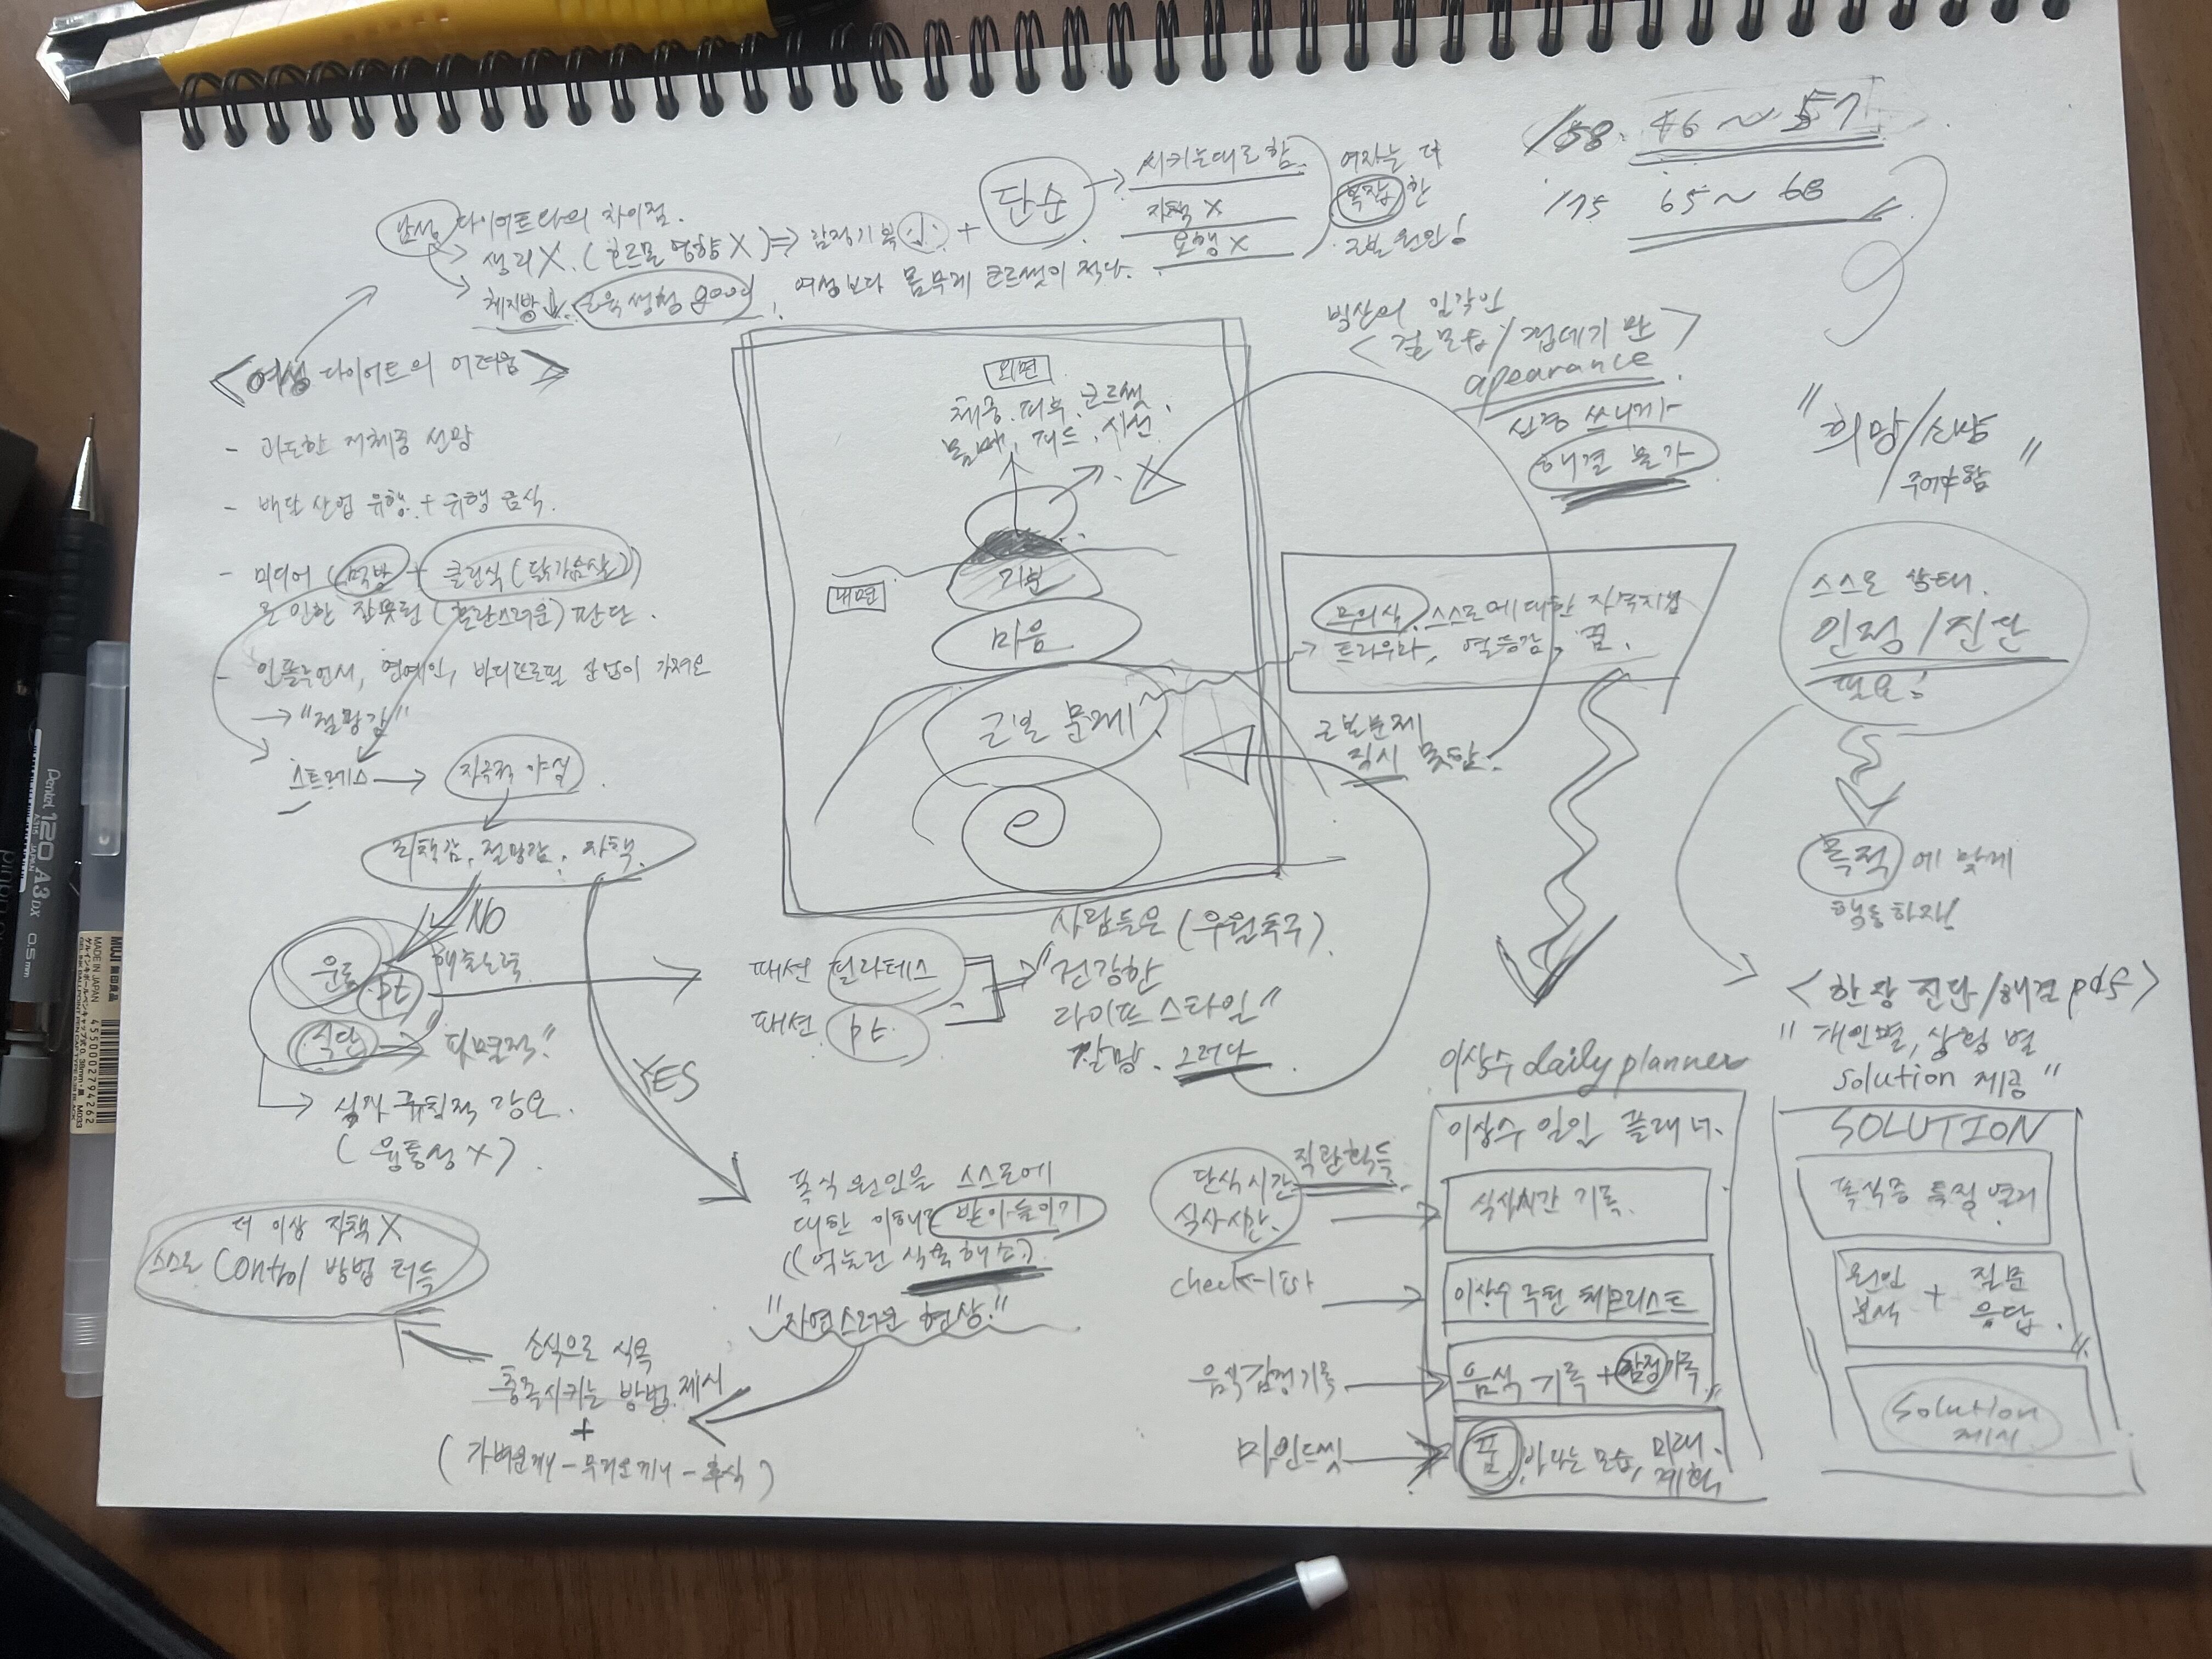 158. 46 ~ 57
175 65 ~ 68
남성 다이어트와의 차이점.
생리X. (호르몬 영향 X) ⇒ 감정기복 小 +
단순
→ 시키는대로 함.
자책 X
요행 X
여자는 더
복잡한
근본 원인!
체지방↓. 근육생성 good, 여성보다 몸무게 코르셋이 적다.
<여성 다이어트의 어려움>
- 과도한 저체중 선망
- 배달 산업 유행 + 유행 음식.
- 미디어 (먹방 + 클린식(닭가슴살))
로 인한 잘못된 (혼란스러운) 판단.
- 인플루언서, 연예인, 바디프로필 산업이 가져온
→ "절망감"
스트레스 → 자극적 야식
죄책감, 절망감, 자책.
NO
운동
pt
식단
해결노력
→ 파멸적"
→ 식사 규칙적 강요.
(융통성 X).
YES
외면
체중. 피부. 코르셋.
몸매, 피드, 시선.
내면
기분
마음
근본 문제
빙산의 일각인
<겉모습/껍데기 만>
apearance.
신경 쓰니까
해결 불가
무의식. 스스로에 대한
트라우마, 열등감, 꿈.
근본문제
직시 못함.
"희망/
주어야함"
스스로 상태.
인정/진단
필요!
목적에 맞게
행동하자!
패션 필라테스
패션 pt.
사람들은
"건강한
라이프 스타일"
갈망. 그러다
폭식 원인을 스스로에
대한 이해로 받아들이기
(억눌린 식욕 해소.)
"자연스러운 현상."
소식으로 식욕
충족시키는 방법 제시
+
(가벼운끼니 - 무거운끼니 - 후식)
더 이상 자책X
스스로 Control 방법 터득
이상수 daily planner
이상수 일일 플래너.
직관획득
단식시간
식사시간.
식사시간 기록.
check-list
이상수 루틴 체크리스트
음식감정기록
음식 기록 + 감정기록.
마인드셋
꿈, 바라는 모습, 미래.
계획.
<한 장 진단/해결 pdf>
"개인별, 상황 별
solution 제공"
SOLUTION
폭식증 특징 열거
원인
분석
+
질문
응답.
solution
제시.
Pentel
120 A3 DX
A315 JAPAN
0.5mm
MUJI 無印良品
MADE IN JAPAN
4550002794262